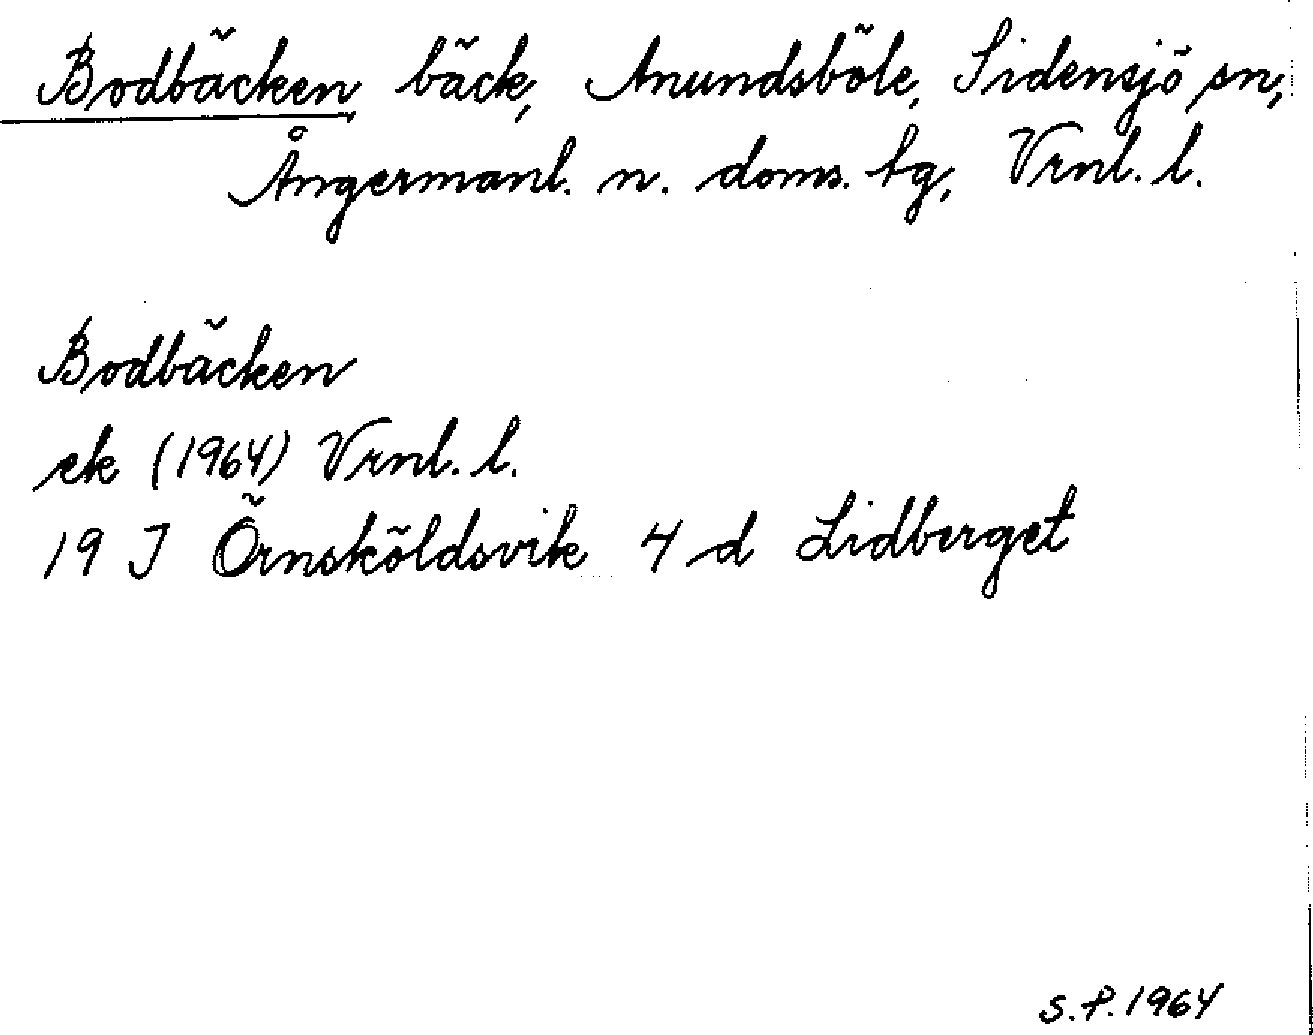 Bodbäcken bäck, Anundsböle, Sidensjö sn,
Ångermanl. n. doms. tg, Vrnl. l.
Bodbäcken
ek (1964) Vrnl. l.
19 J Örnsköldsvik 4 d Lidberget
S.P. 1964